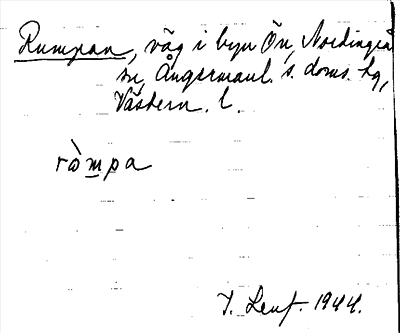 Rumpan, väg i byn Ön, Nordingrå
sn, Ångermanl. s. doms. hg,
Västern. l.
ròmpa
1944.